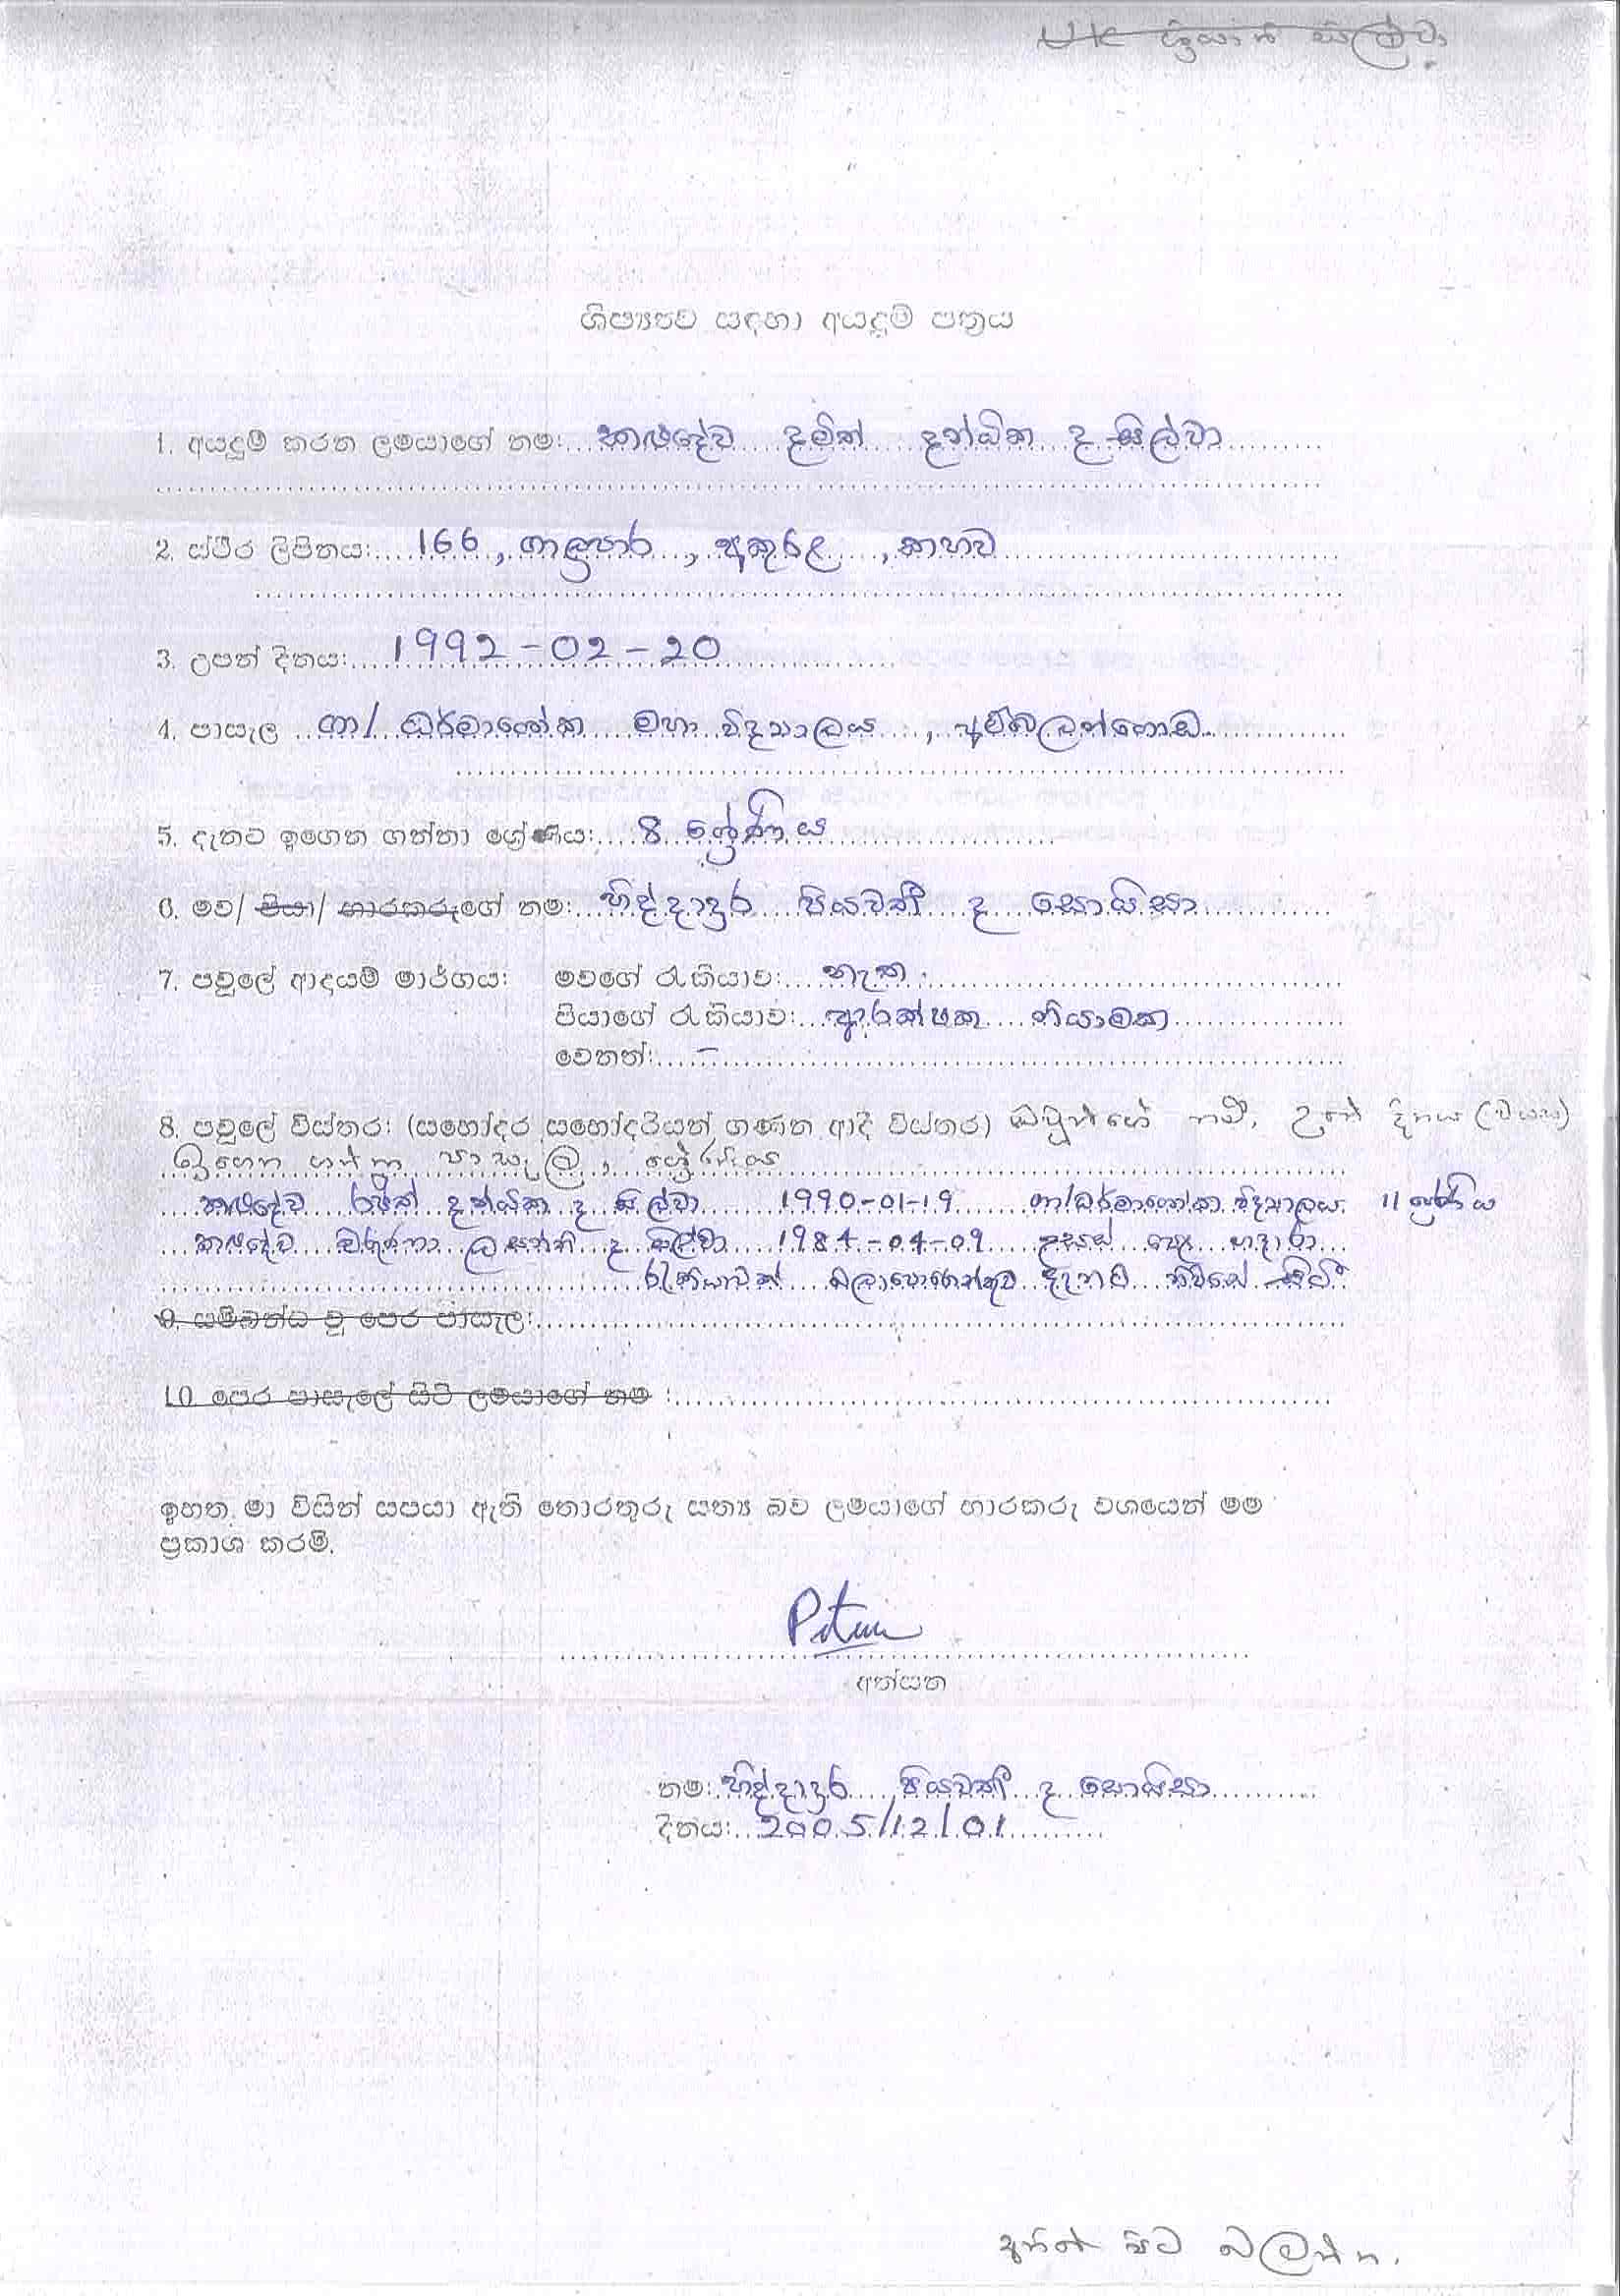 UK ශ්‍රියානි සිල්වා
ශිෂ්‍යත්ව සඳහා අයදුම් පත්‍රය
1. අයදුම් කරන ළමයාගේ නම: කළුදේව දමිත් දන්ධික ද සිල්වා
2. ස්ථිර ලිපිනය: 166, ගාලුපාර, අකුරල, කහව
3. උපන් දිනය: 1992-02-20
4. පාසැල ගා/ ධර්මාශෝක මහා විද්‍යාලය, අම්බලන්ගොඩ
5. දැනට ඉගෙන ගන්නා ශ්‍රේණිය: 8 ශ්‍රේණිය
6. මව/ පියා/ භාරකරුගේ නම: හිද්දාදුර පියවතී ද සොයිසා
7. පවුලේ ආදායම් මාර්ගය: මවගේ රැකියාව: නැත.
පියාගේ රැකියාව: ආරක්ෂක නියාමක
වෙනත්: –
8. පවුලේ විස්තර: (සහෝදර සහෝදරියන් ගණන ආදී විස්තර) ඔවුන්ගේ නම්, උපන් දිනය (වයස)
ඉගෙන ගන්නා පාසැල, ශ්‍රේණිය
කළුදේව රජිත් දන්ධික ද සිල්වා 1990-01-19 ගා/ධර්මාශෝක විද්‍යාලය 11 ශ්‍රේණිය
කළුදේව ලසන්ති ද සිල්වා 1984-04-09 උසස් පෙළ හදාරා
රැකියාවක් බලාපොරොත්තුව දැනට නිවසේ සිටී
9. සම්බන්ධ වූ පෙර පාසැල:
10. පෙර පාසැලේ සිටි ළමයාගේ නම :
ඉහත මා විසින් සපයා ඇති තොරතුරු සත්‍ය බව ළමයාගේ භාරකරු වශයෙන් මම
ප්‍රකාශ කරමි.
අත්සන
නම: හිද්දාදුර පියවතී ද සොයිසා
දිනය: 2005/12/01
අනිත් පිට බලන්න.